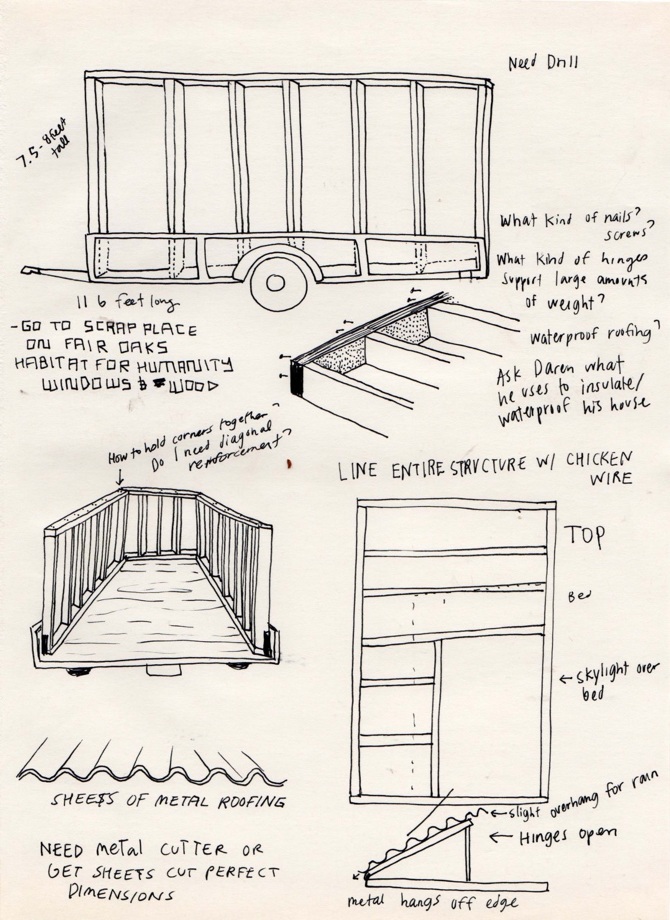 Need Drill
7.5 - 8 feet
tall
What kind of nails?
screws?
What kind of hinges
support large amounts
of weight?
waterproof roofing?
Ask Daren what
he uses to insulate/
waterproof his house
11 6 feet long
- GO TO SCRAP PLACE
ON FAIR OAKS
HABITAT FOR HUMANITY
WINDOWS & WOOD
How to hold corners together?
Do I need diagonal
reinforcement?
LINE ENTIRE STRUCTURE W/ CHICKEN
WIRE
TOP
Bed
← skylight over
bed
SHEETS OF METAL ROOFING
← slight overhang for rain
← Hinges open
metal hangs off edge
NEED METAL CUTTER OR
GET SHEETS CUT PERFECT
DIMENSIONS